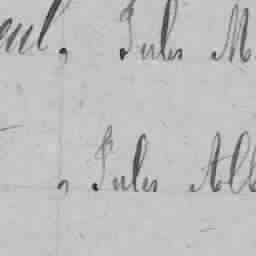 eul, Jules M.
, Jules Alb